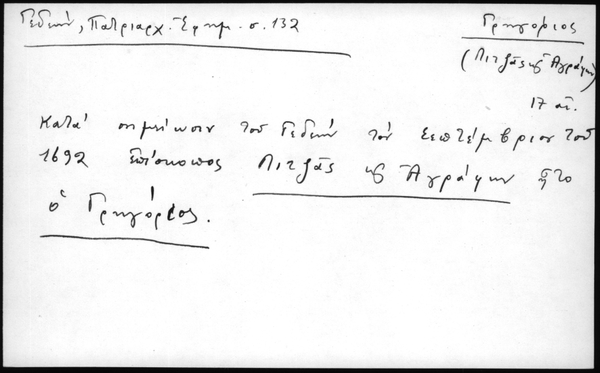 Γεδεών, Πατριαρχ. Ἐφημ. σ. 132
Γρηγόριος
(Λιτζᾶς κ Ἀγράφων)
17 αἰ.
Κατά σημείωσιν τοῦ Γεδεών τόν Σεπτέμβριον τοῦ
1692 ἐπίσκοπος Λιτζᾶς κ Ἀγράφων ἦτο
ὁ Γρηγόριος.